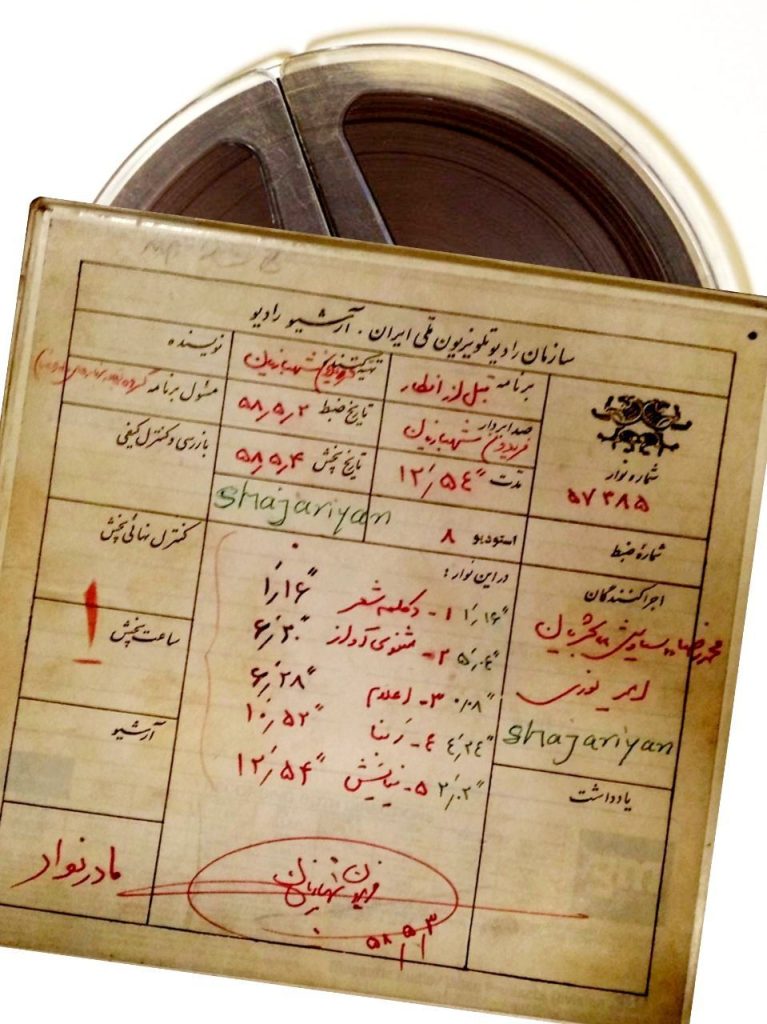 سازمان رادیو تلویزیون ملی ایران . آرشیو رادیو
شماره نوار
۵۷۳۸۵
برنامه قبل از افطار
تهیه کننده فریدون شهبازیان
نویسنده
صدابردار فریدون شهبازیان
تاریخ ضبط ۵۸,۵,۲
مسئول برنامه
مدت ۱۲٬۵٤″
تاریخ پخش ۵۸,۵,۴
بازرسی و کنترل کیفی
شمارهٔ ضبط
استودیو ۸
shajariyan
کنترل نهائی پخش
اجراکنندگان
محمدرضا سیاوش شجریان
امیر نوری
shajariyan
در این نوار :
۱٬۱۶″ ۱- دکلمه شعر ۱٬۱۶″
۵٬۰٤″ ۲- مثنوی آواز ۶٬۲۰″
۰٬۰۸″ ۳- اعلام ۶٬۲۸″
٤٬۲٤″ ٤- ربنا ۱۰٬۵۲″
۲٬۰۲″ ۵- نیایش ۱۲٬۵۴″
ساعت پخش
آرشیو
یادداشت
مادر نوار
فریدون شهبازیان
۵۸,۵,۳